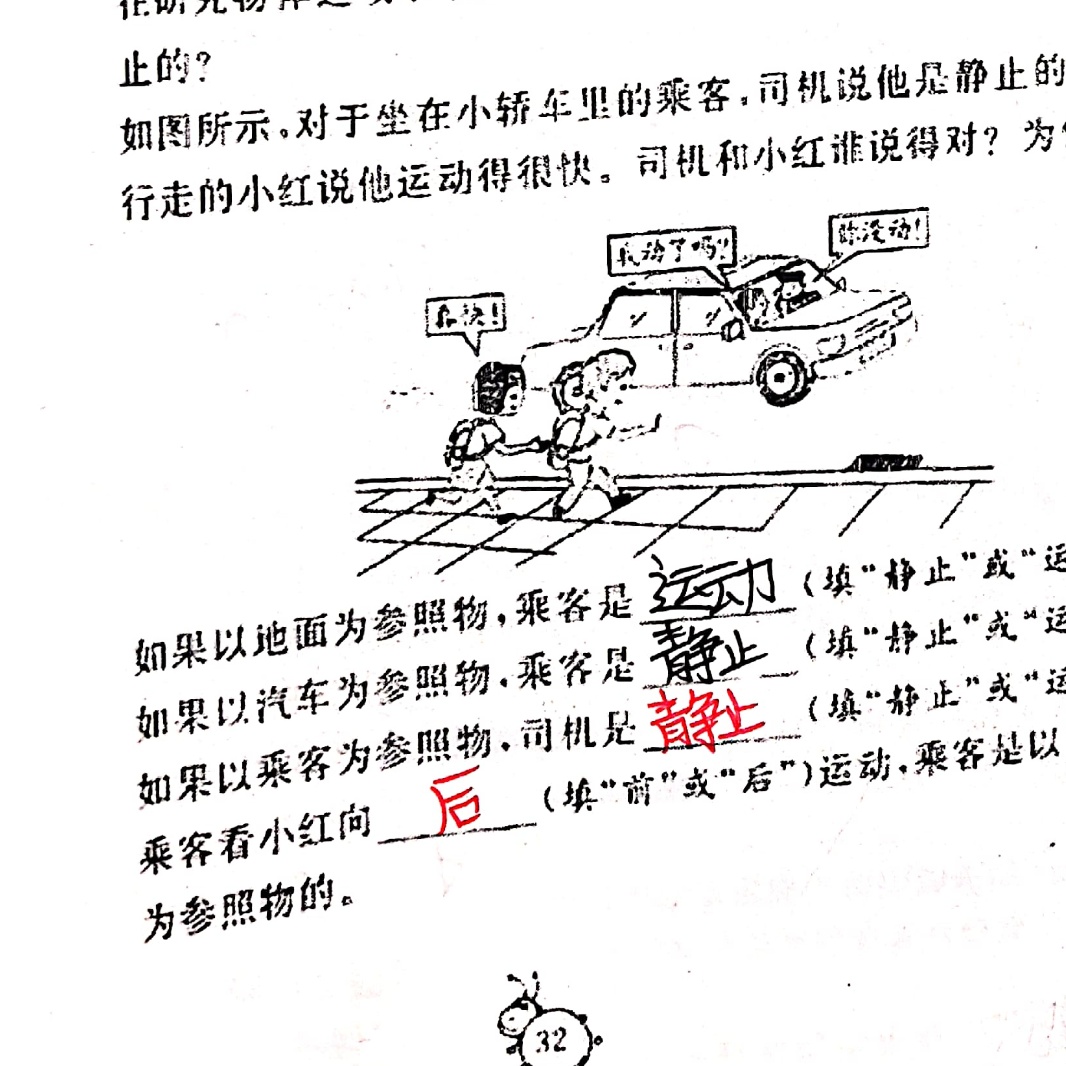 止的?
如图所示。对于坐在小轿车里的乘客,司机说他是静止的
行走的小红说他运动得很快。司机和小红谁说得对?为
我动了吗?
你没动!
如果以地面为参照物,乘客是运动(填“静止”或“运
如果以汽车为参照物,乘客是静止(填“静止”或“运
如果以乘客为参照物,司机是静止(填“静止”或“运
乘客看小红向后(填“前”或“后”)运动,乘客是以
为参照物的。
32